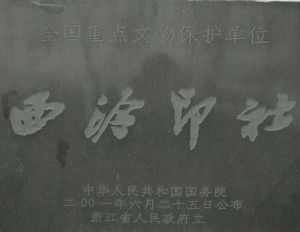 全国重点文物保护单位
西泠印社
中华人民共和国国务院
二〇〇一年六月二十五日公布
浙江省人民政府立